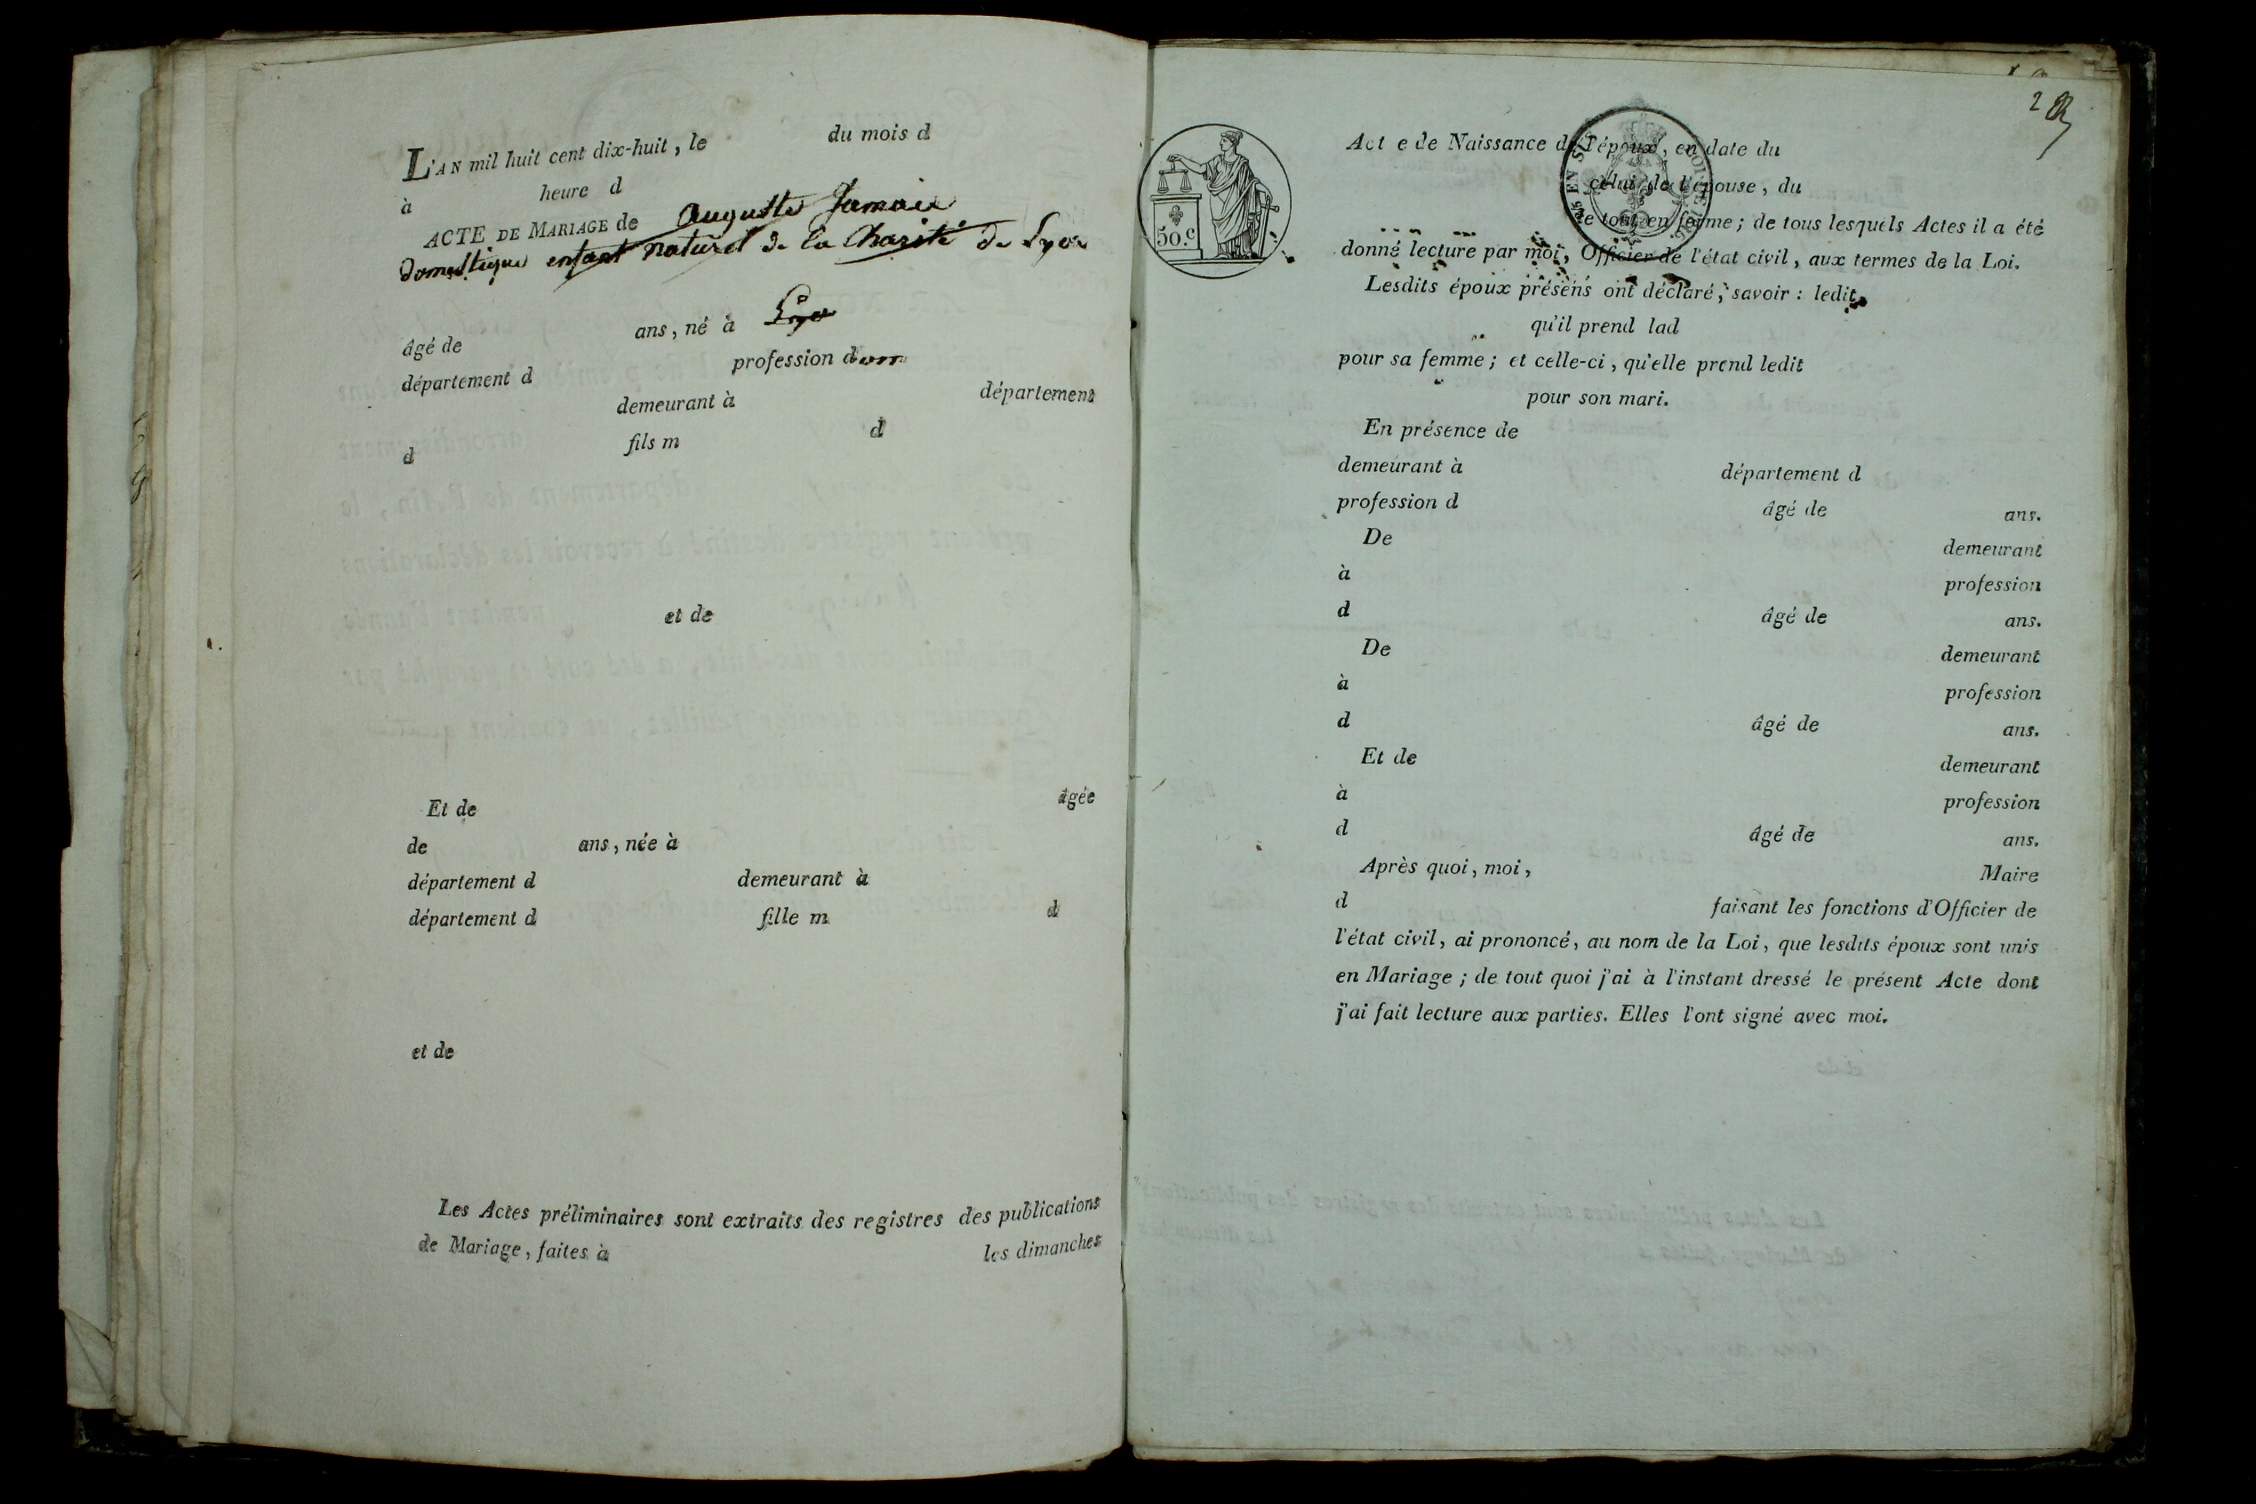 L'AN mil huit cent dix-huit, le du mois d
à heure d
ACTE DE MARIAGE de auguste Jamais
domestique enfant naturel de la Charité de Lyon
âgé de ans, né à Lyon
département d profession dom
demeurant à département
d fils m d
et de
Et de âgée
de ans, née à
département d demeurant à
département d fille m d
et de
Les Actes préliminaires sont extraits des registres des publications
de Mariage, faites à les dimanches
2
50.c
Act e de Naissance de l'époux, en date du
celui de l'épouse, du
le tout en forme; de tous lesquels Actes il a été
donné lecture par moi, Officier de l'état civil, aux termes de la Loi.
Lesdits époux présens ont déclaré, savoir : ledit
qu'il prend lad
pour sa femme; et celle-ci, qu'elle prend ledit
pour son mari.
En présence de
demeurant à département d
profession d âgé de ans.
De demeurant
à profession
d âgé de ans.
De demeurant
à profession
d âgé de ans.
Et de demeurant
à profession
d âgé de ans.
Après quoi, moi, Maire
d faisant les fonctions d'Officier de
l'état civil, ai prononcé, au nom de la Loi, que lesdits époux sont unis
en Mariage; de tout quoi j'ai à l'instant dressé le présent Acte dont
j'ai fait lecture aux parties. Elles l'ont signé avec moi.